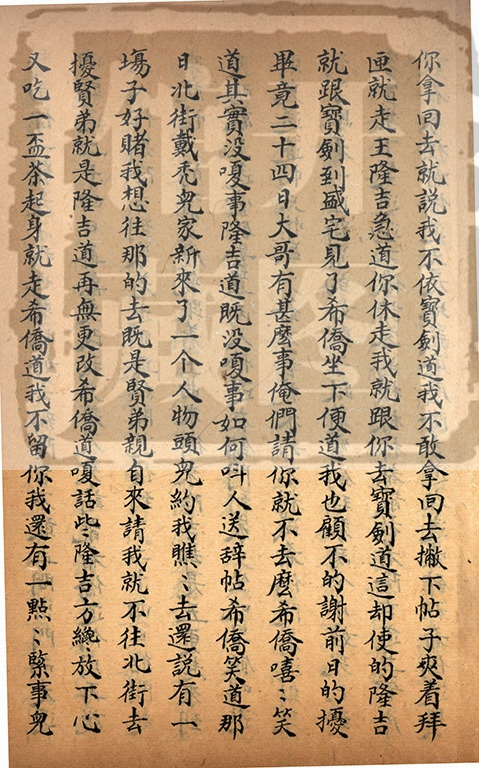 你拿回去就説我不依寶劍道我不敢拿回去撇下帖子夾着拜
匣就走王隆吉急道你休走我就跟你去寶劍道這却使的隆吉
就跟寶劍到盛宅見了希僑坐下便道我也顧不的謝前日的擾
畢竟二十四日大哥有甚麽事俺們請你就不去麽希僑嘻〻笑
道其實没嗄事隆吉道既没嗄事如何呌人送辞帖希僑笑道那
日北街戴禿兒家新來了一个人物頭兒約我瞧〻去還説有一
塲子好賭我想往那的去既是賢弟親自來請我就不往北街去
擾賢弟就是隆吉道再無更改希僑道嗄話些〻隆吉方纔放下心
又吃一盃茶起身就走希僑道我不留你我還有一點〻緊事兒